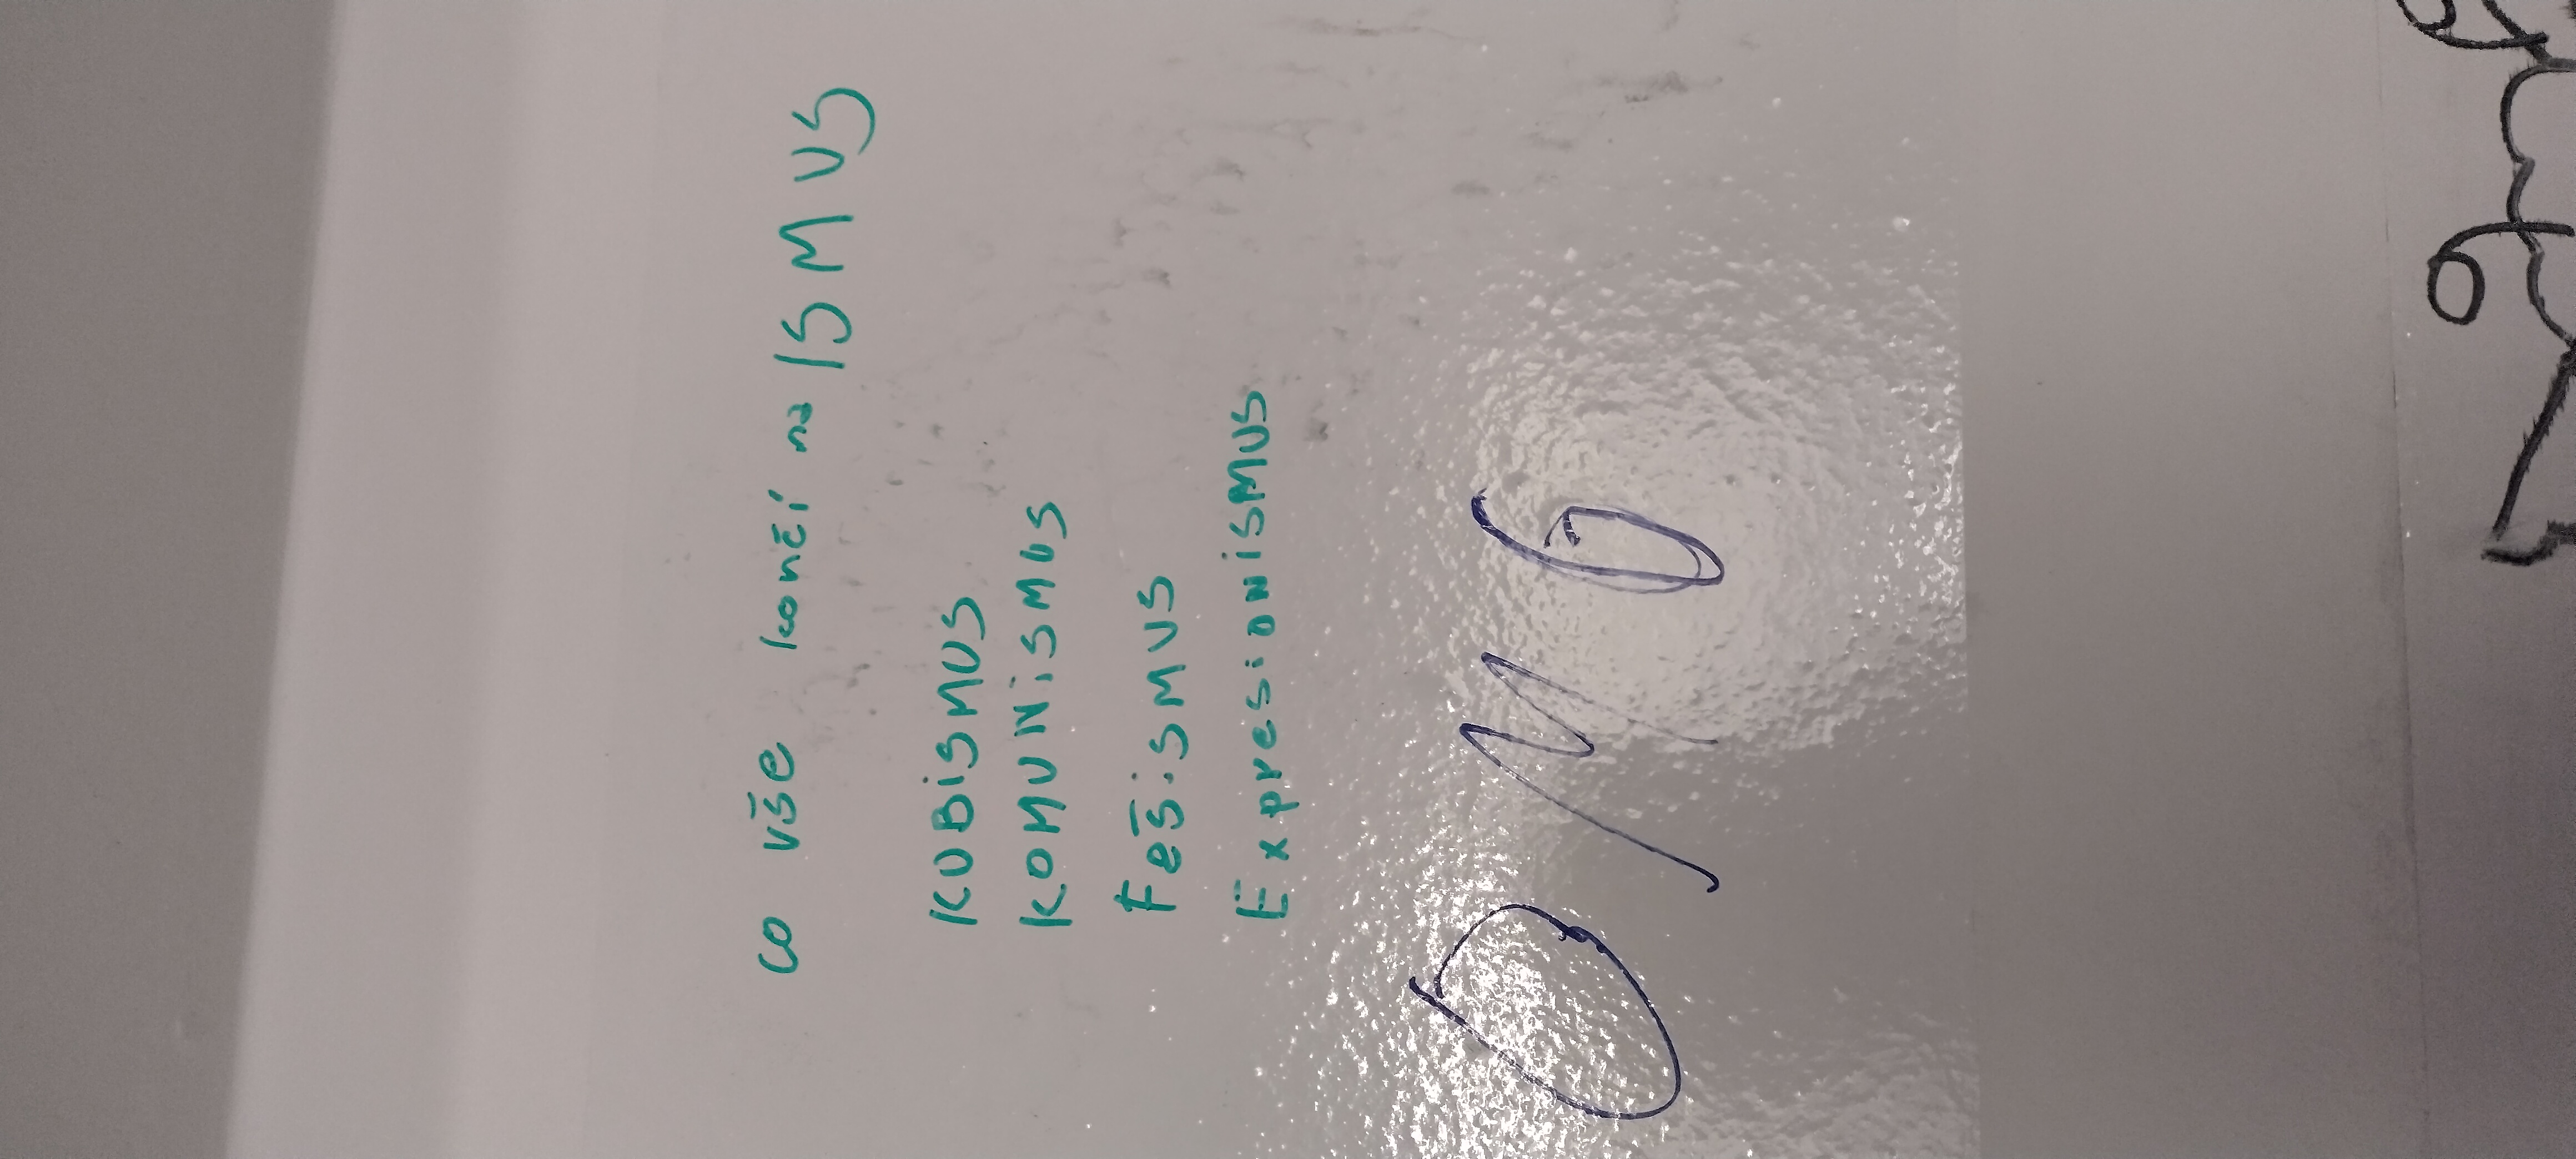 co vše končí na ISMUS
KUBiSMUS
KOMUNiSMUS
Fešismus
ExpresioniSMUS
OMG